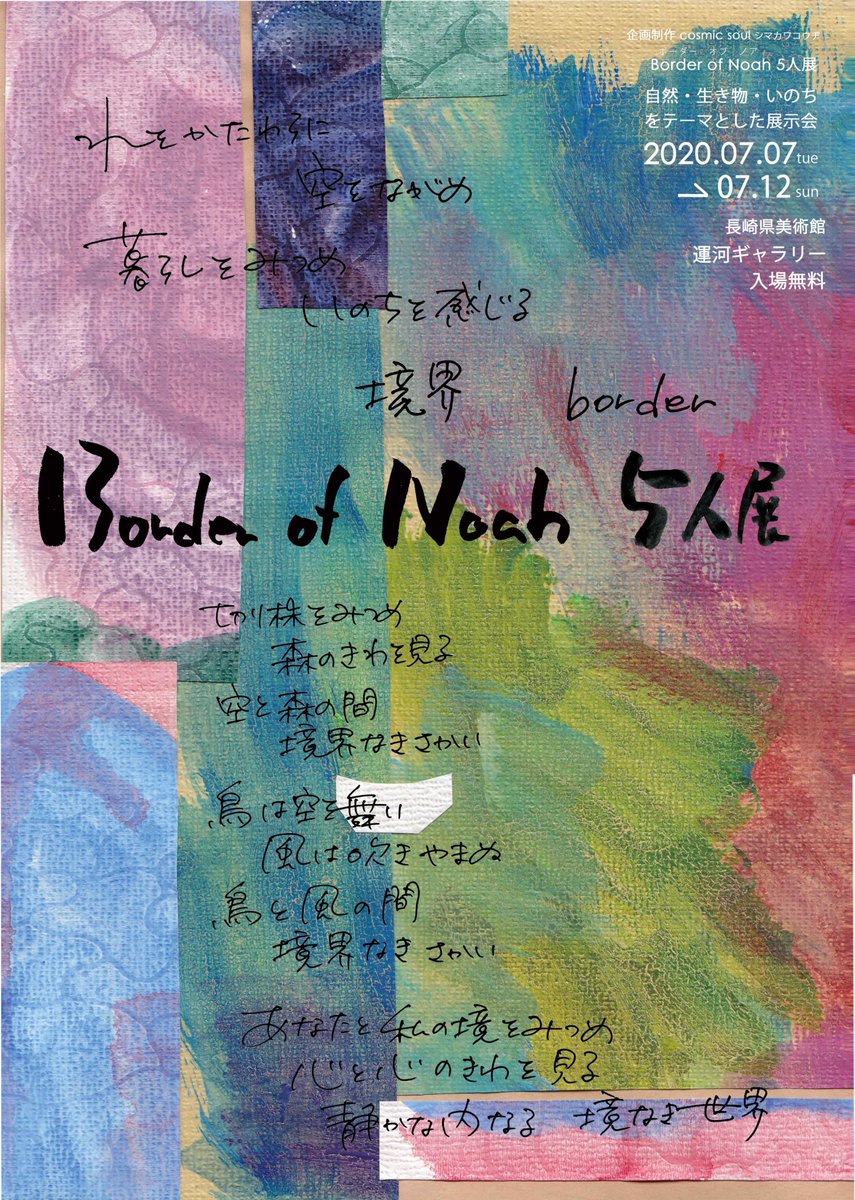 企画制作 cosmic soul シマカワコウヂ
ボーダー オブ ノア
Border of Noah 5人展
自然・生き物・いのち
をテーマとした展示会
2020.07.07tue
→ 07.12 sun
長崎県美術館
運河ギャラリー
入場無料
れをかたわらに
空をながめ
暮らしをみつめ
いのちを感じる
境界 border
Border of Noah 5人展
切り株をみつめ
森のきわを見る
空と森の間
境界なきさかい
鳥は空を舞い
風は吹きやまぬ
鳥と風の間
境界なきさかい
あなたと私の境をみつめ
心と心のきわを見る
静かな内なる 境なき世界